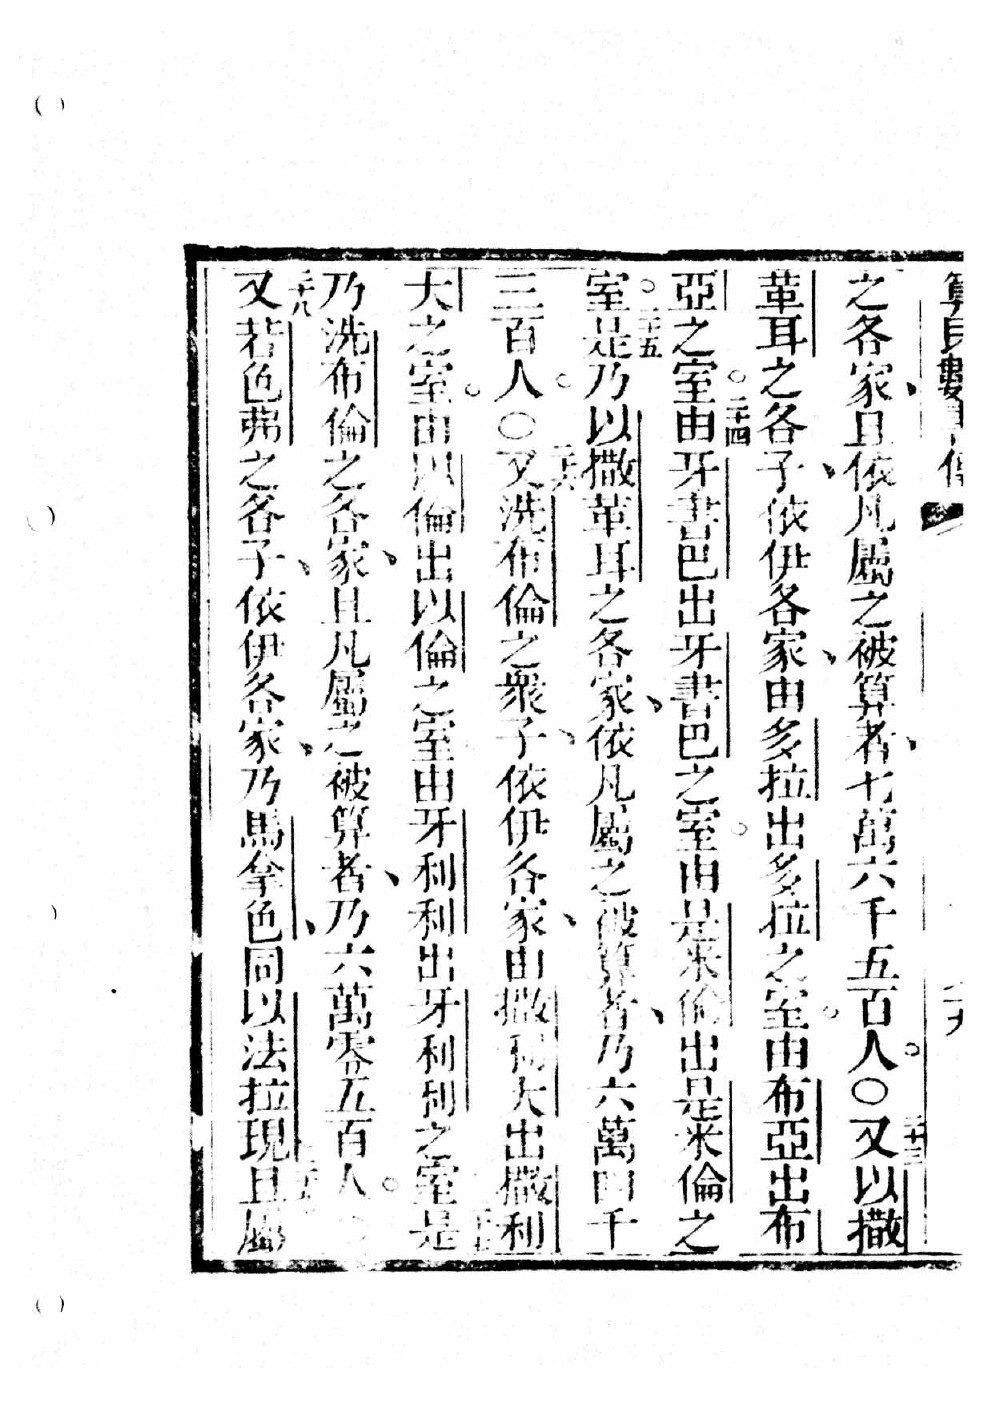 算民數書傳
之各家、且依凡屬之被算者、七萬六千五百人。○二十三又以撒
革耳之各子、依伊各家、由多拉出多拉之室。由布亞出布
亞之室。二十四由牙書巴出牙書巴之室。由是來倫出是來倫之
室。二十五是乃以撒革耳之各家、依凡屬之被算者、乃六萬四千
三百人。○二十六又洗布倫之衆子、依伊各家、由撒利大出撒利
大之室。由以倫出以倫之室由牙利利出牙利利之室是
乃洗布倫之各家、且凡屬之被算者、乃六萬零五百人。○
二十八又若色弗之各子、依伊各家、乃馬拿色、同以法拉現且屬